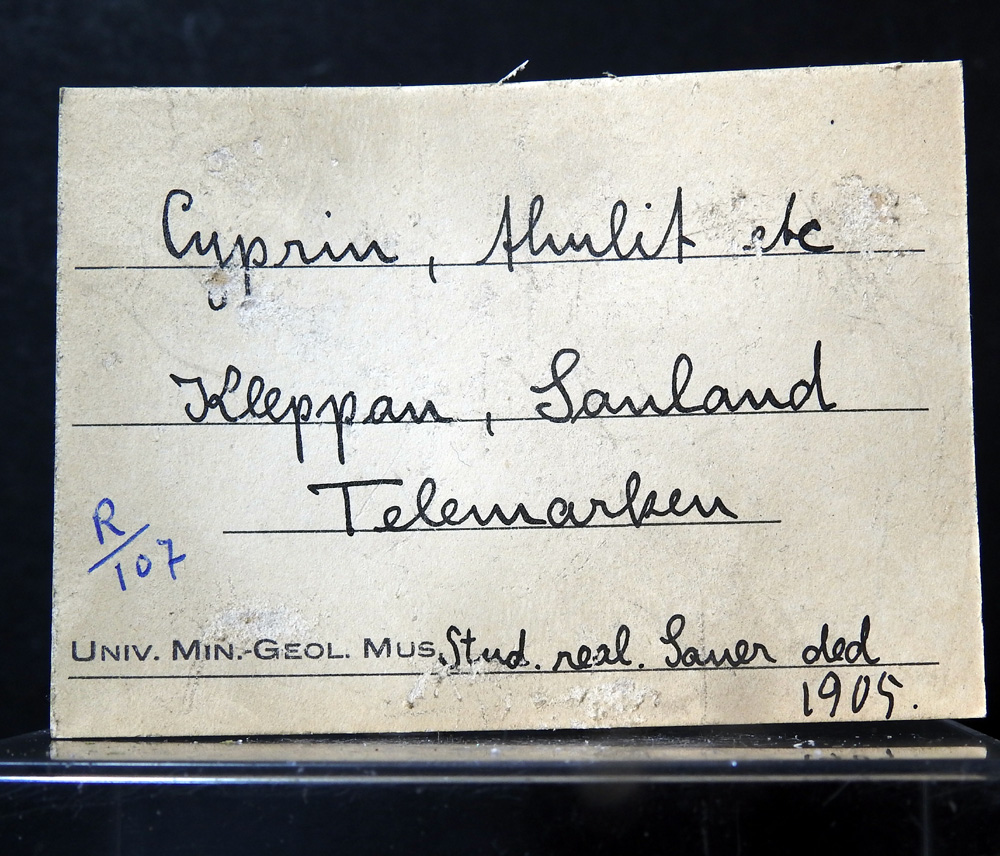 Cyprin, thulit etc
Kleppan, Sauland
Telemarken
R/107
UNIV. MIN.-GEOL. MUS. Stud. real. Sauer ded
1905.